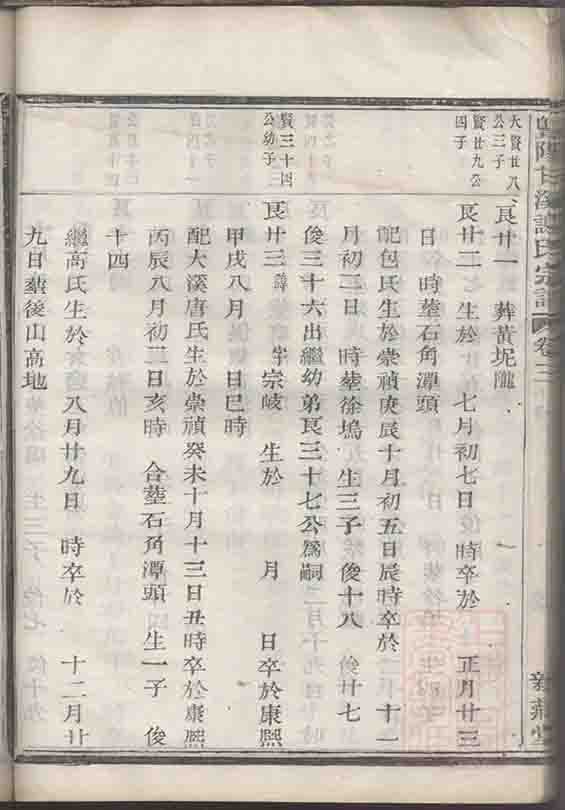 溪謝氏宗譜 卷三
大賢廿八公三子
良廿一 葬黃坭隴
賢廿九公四子
良廿二 生於 七月初七日 時卒於 正月廿三
日 時塟石角潭頭
配包氏生於崇禎庚辰十月初五日辰時卒於 十一
月初二日 時塟徐塢 生三子 俊十八 俊廿七
俊三十六出繼幼弟良三十七公為嗣
賢三十四公幼子
良廿三 諱 字宗岐 生於 月 日卒於康熙
甲戌八月 日巳時
配大溪唐氏生於崇禎癸未十月十三日丑時卒於康熙
丙辰八月初二日亥時 合塟石角潭頭 生一子 俊
十四
繼高氏生於 八月廿九日 時卒於 十二月廿
九日塟後山高地